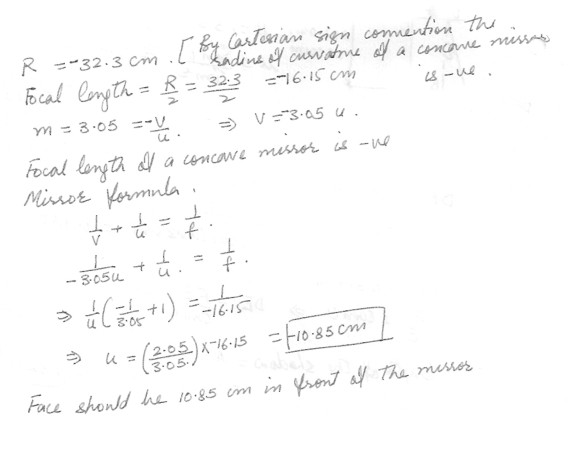 R = -32.3 cm. [ By Cartesian sign convention the
radius of curvature of a concave mirror
is -ve.
Focal length = R/2 = 32.3/2 = -16.15 cm
m = 3.05 = -V/u. ⇒ V = -3.05 u.
Focal length of a concave mirror is -ve
Mirror formula.
1/V + 1/u = 1/f.
1/-3.05u + 1/u. = 1/f.
⇒ 1/u (-1/3.05 + 1) = 1/-16.15
⇒ u = (2.05/3.05.) X -16.15 = -10.85 cm
Face should be 10.85 cm in front of the mirror